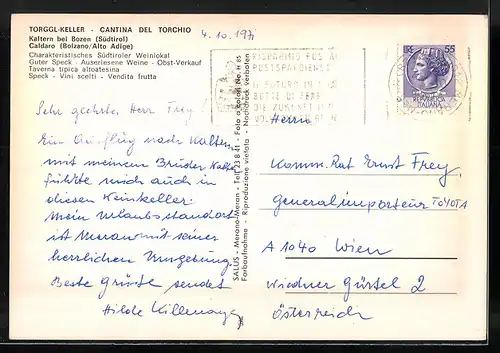 TORGGL-KELLER - CANTINA DEL TORCHIO
Kaltern bei Bozen (Südtirol)
Caldaro (Bolzano/Alto Adige)
Charakteristisches Südtiroler Weinlokal
Guter Speck - Auserlesene Weine - Obst-Verkauf
Taverna tipica altoatesina
Speck - Vini scelti - Vendita frutta
4.10.197
Sehr geehrter Herr Frey!
Ein Ausflug nach Kaltern
mit meinem Bruder
führte mich auch in
diesen Weinkeller.
Mein Urlaubsstandort
ist Meran mit seiner
herrlichen Umgebung.
Beste Grüße sendet
Hilde
SALUS - Merano-Meran - Tel. 23 8 41 - Foto a colori No. H 65
Farbaufnahme - Riproduzione vietata - Nachdruck verboten
RISPARMIO POSTALE
POSTSPARDIENST
IL FUTURO IN
DIE ZUKUNFT IN
LIRE 55
REPUBBLICA
ITALIANA
Herrn
Komm.Rat Ernst Frey,
Generalimporteur TOYOTA
A 1040 Wien
Wiedner Gürtel 2
Österreich